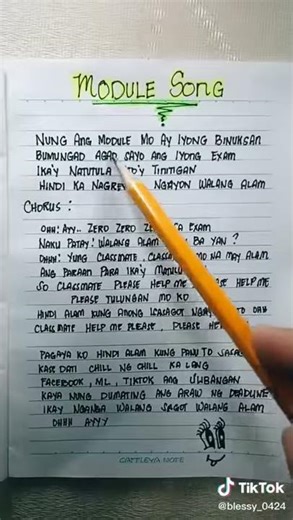 MODULE SONG
NUNG ANG MODULE MO AY IYONG BINUKSAN
BUMUNGAD AGAD SAYO ANG IYONG EXAM
IKA'Y NATUTULA TITITIGAN
HINDI KA NAGREV NGAYON WALANG ALAM
CHORUS :
OHH! AYY.. ZERO ZERO EXAM
NAKU PATAY! WALANG ALAM BA YAN ?
OHHH! YUNG CLASSMATE , MO NA MAY ALAM
ANG PARAAN PARA IKA'Y
SO CLASSMATE PLEASE HELP ME HELP ME
PLEASE TULUNGAN MO KO
HINDI ALAM KUNG ANONG ISASAGOT OHH
CLASSMATE HELP ME PLEASE , PLEASE
PAGAYA KO HINDI ALAM KUNG PANU TO
KASE DATI CHILL NG CHILL KA LANG
FACEBOOK, ML, TIKTOK ANG
KAYA NUNG DUMATING ANG ARAW NG DEADLINE
IKAY NGANBA WALANG SAGOT WALANG ALAM
OHHH AYYY
CATTLEYA NOTE
TikTok
@blessy_0424